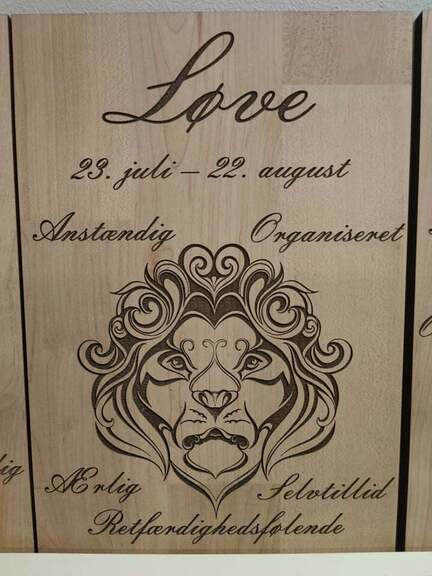 Løve
23. juli – 22. august
Anstændig Organiseret
Ærlig Selvtillid
Retfærdighedsfølende